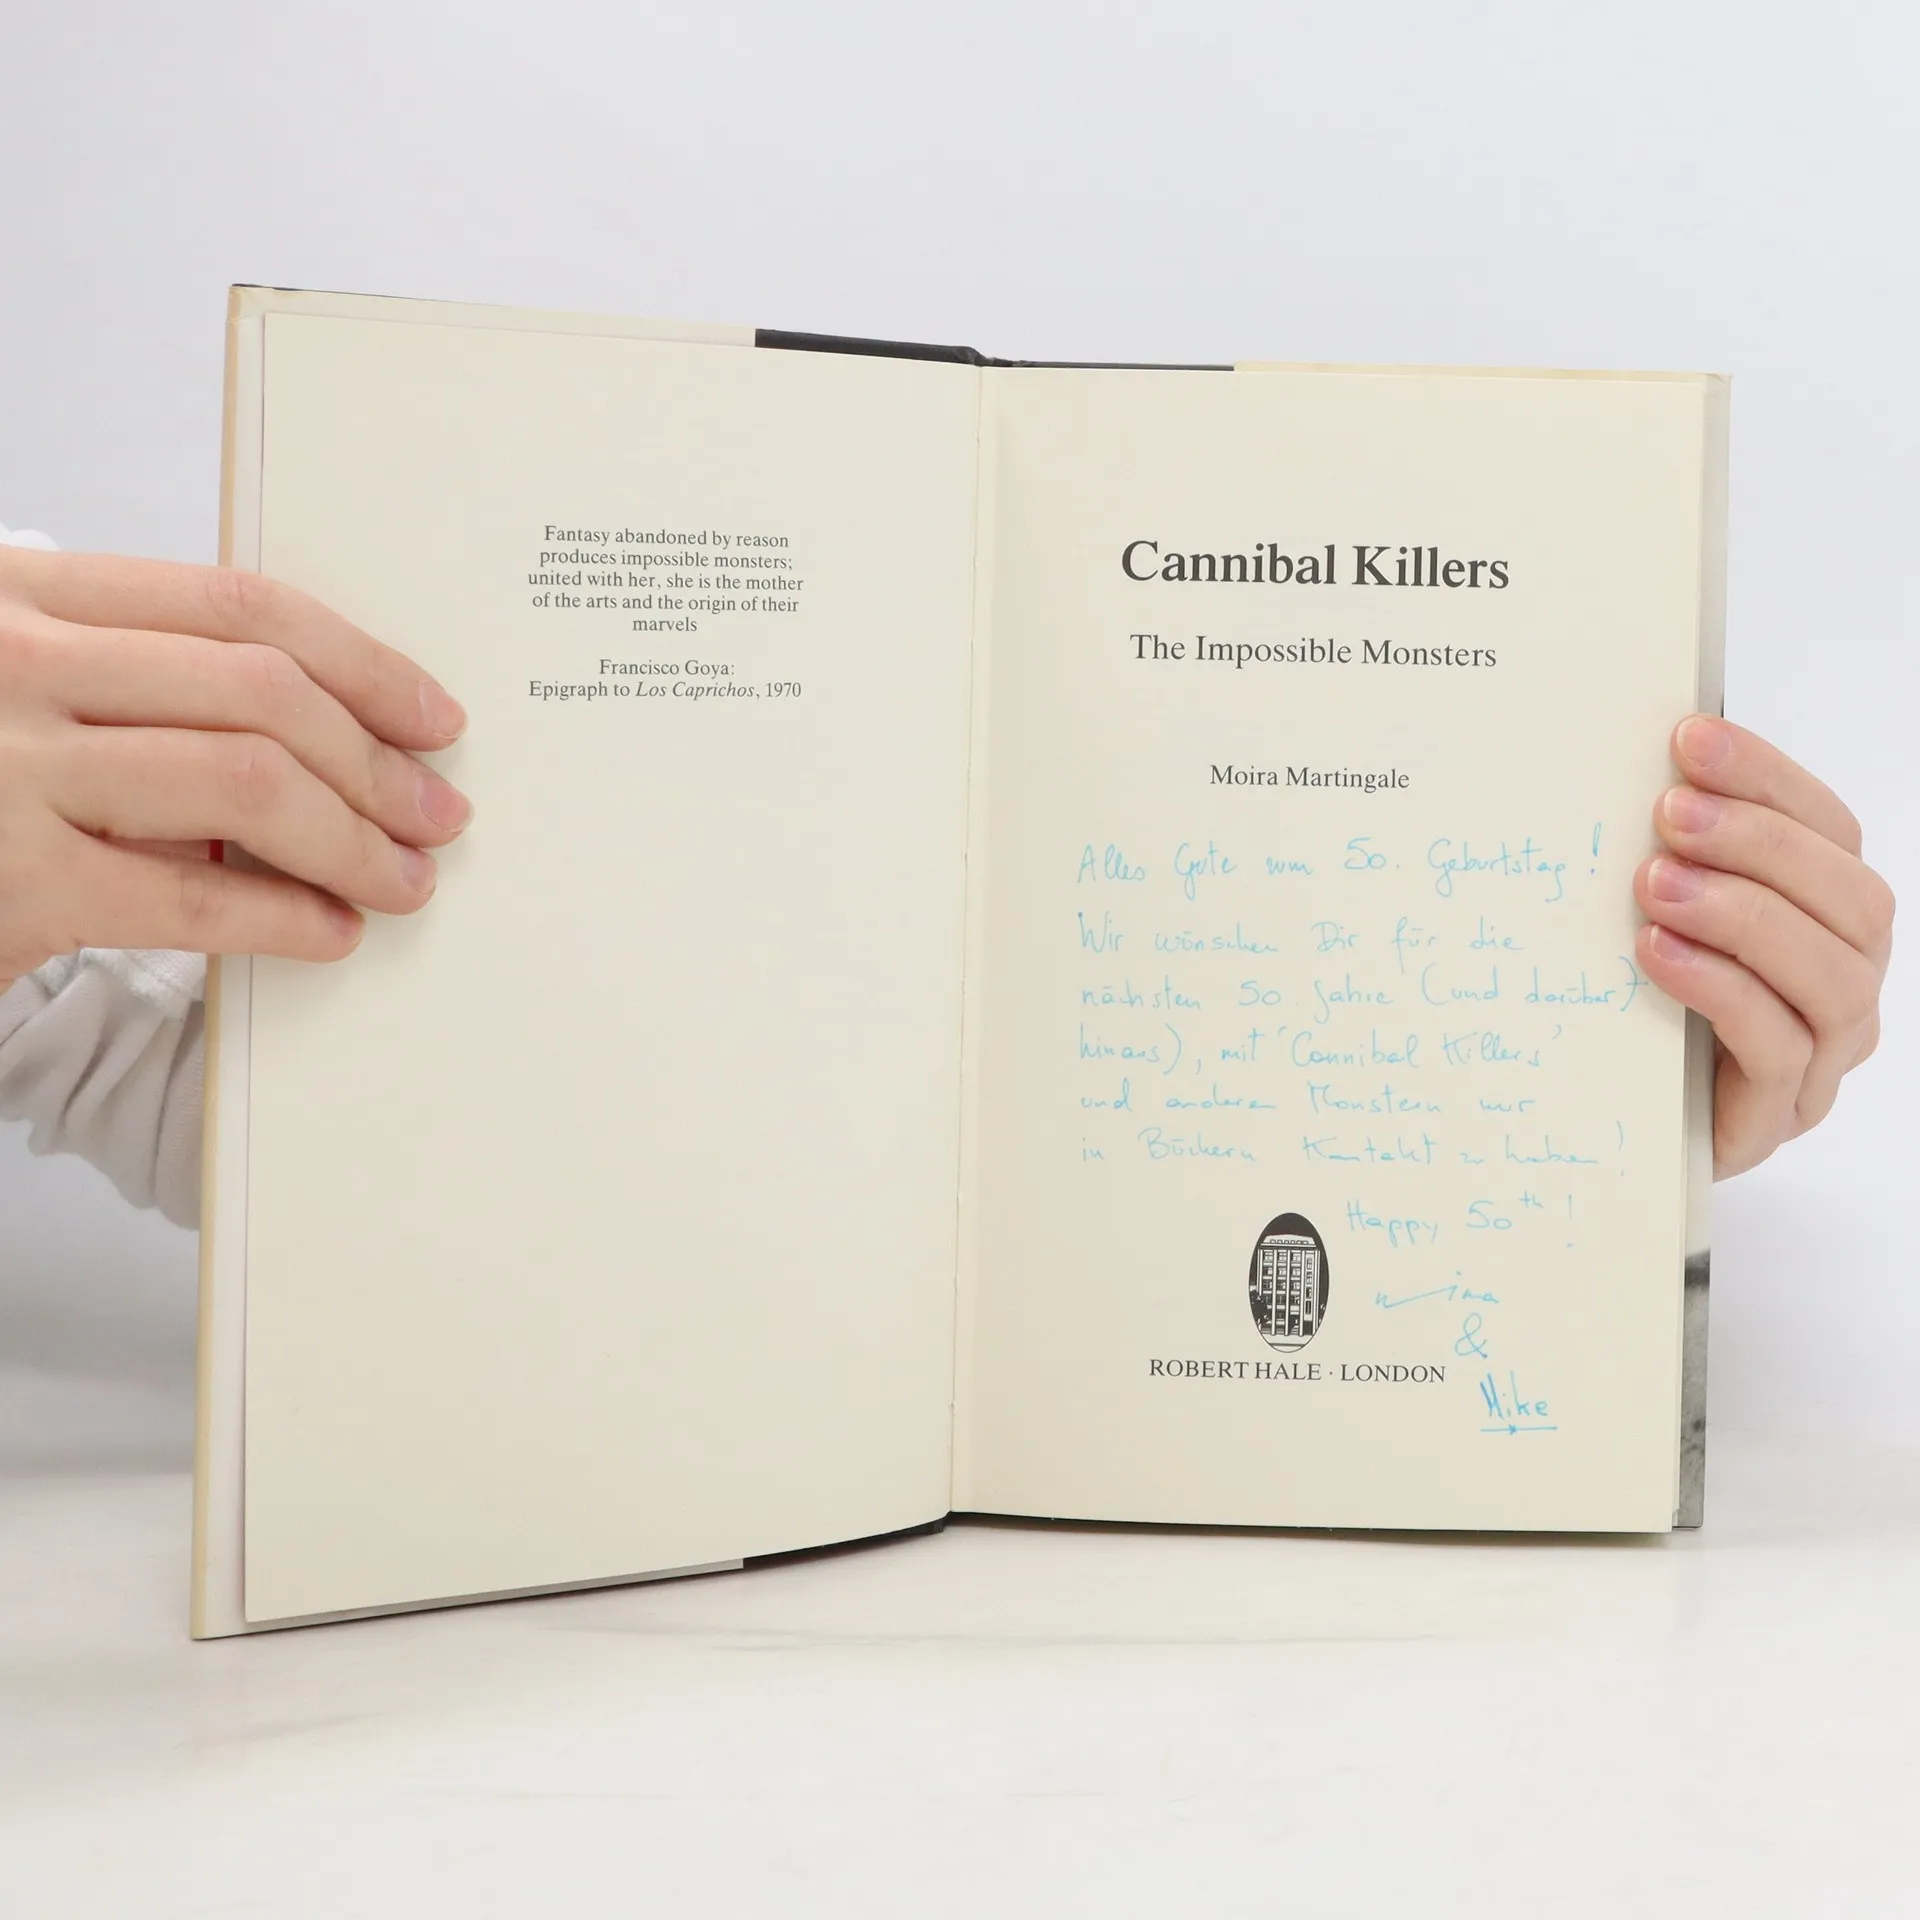 Fantasy abandoned by reason
produces impossible monsters;
united with her, she is the mother
of the arts and the origin of their
marvels
Francisco Goya:
Epigraph to Los Caprichos, 1970
Cannibal Killers
The Impossible Monsters
Moira Martingale
Alles Gute zum 50. Geburtstag!
Wir wünschen Dir für die
nächsten 50 Jahre (und darüber
hinaus), mit 'Cannibal Killers'
und anderen Monstern nur
in Büchern Kontakt zu haben!
Happy 50th!
&
Mike
ROBERT HALE · LONDON